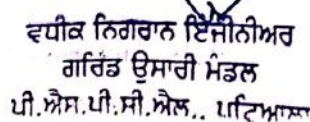 ਵਧੀਕ ਨਿਗਰਾਨ ਇੰਜੀਨੀਅਰ
ਗਰਿੱਡ ਉਸਾਰੀ ਮੰਡਲ
ਪੀ.ਐਸ.ਪੀ.ਸੀ.ਐਲ.. ਪਟਿਆਲਾ